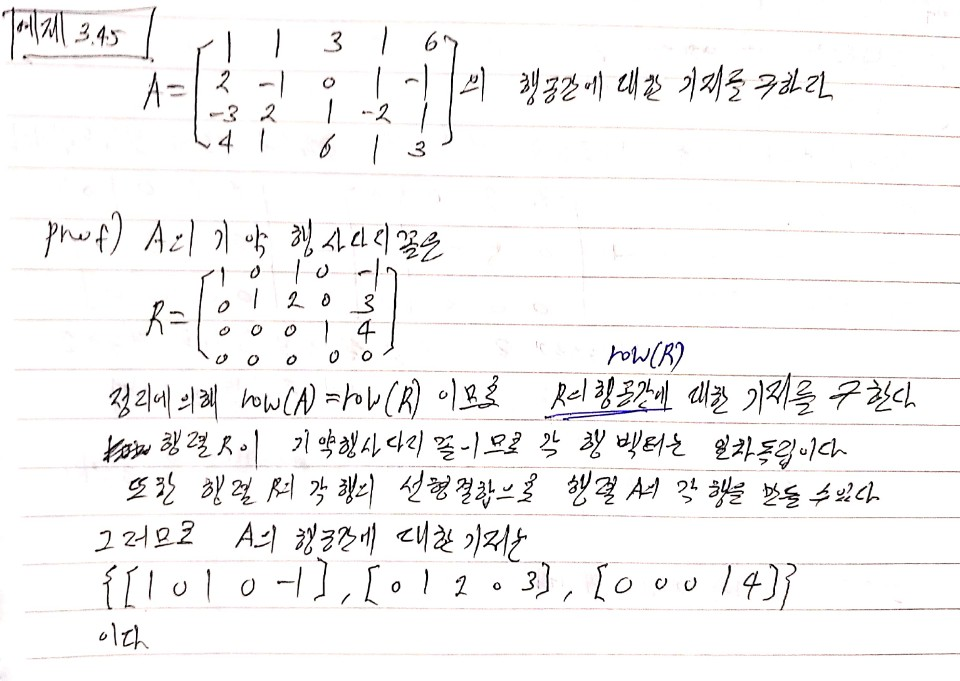 예제 3.4.5
A = [1 1 3 1 6
2 -1 0 1 -1
-3 2 1 -2 1
4 1 6 1 3] 의 행공간에 대한 기저를 구하라
proof) A의 기약 행 사다리꼴은
R = [1 0 1 0 -1
0 1 2 0 3
0 0 0 1 4
0 0 0 0 0]
row(R)
정리에 의해 row(A) = row(R) 이므로 R의 행공간에 대한 기저를 구한다
행렬 R이 기약행사다리 꼴이므로 각 행 벡터는 일차독립이다
또한 행렬 R의 각 행의 선형결합으로 행렬 A의 각 행을 만들 수 있다
그러므로 A의 행공간에 대한 기저는
{[1 0 1 0 -1], [0 1 2 0 3], [0 0 0 1 4]}
이다